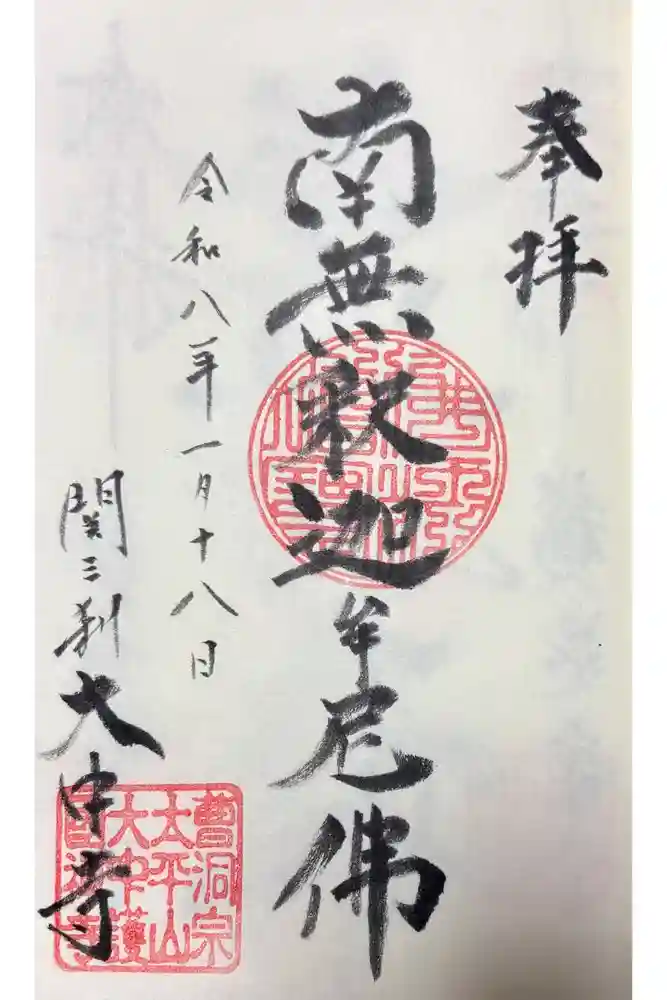 奉拝
南無釈迦牟尼佛
令和八年一月十八日
関三刹
大中寺
曹洞宗
太平山
大中護